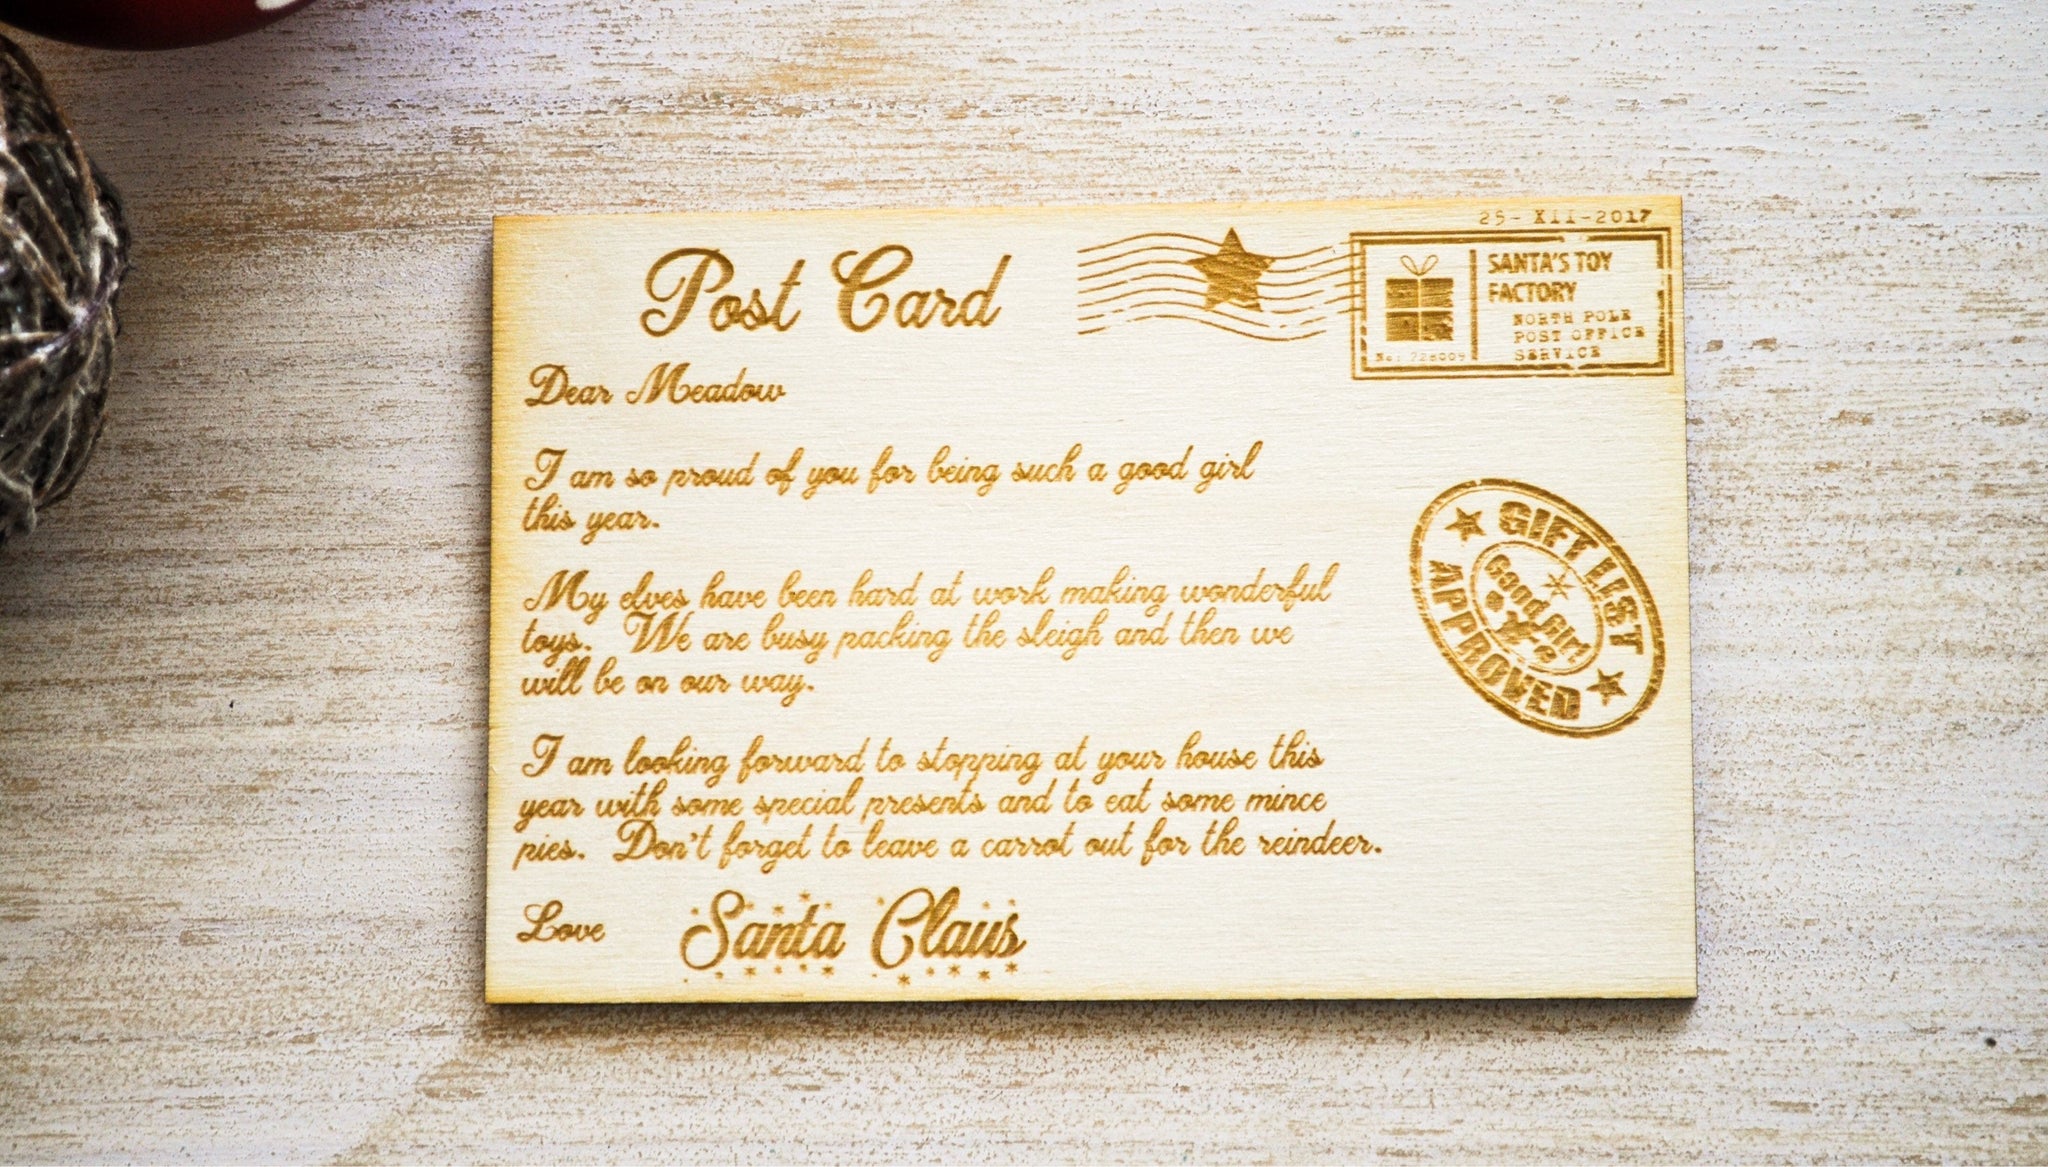 25-XII-2017
Post Card
SANTA'S TOY
FACTORY
NORTH POLE
POST OFFICE
SERVICE
No: 728009
Dear Meadow
I am so proud of you for being such a good girl
this year.
My elves have been hard at work making wonderful
toys. We are busy packing the sleigh and then we
will be on our way.
GIFT LIST
Good Girl
APPROVED
I am looking forward to stopping at your house this
year with some special presents and to eat some mince
pies. Don't forget to leave a carrot out for the reindeer.
Love Santa Claus